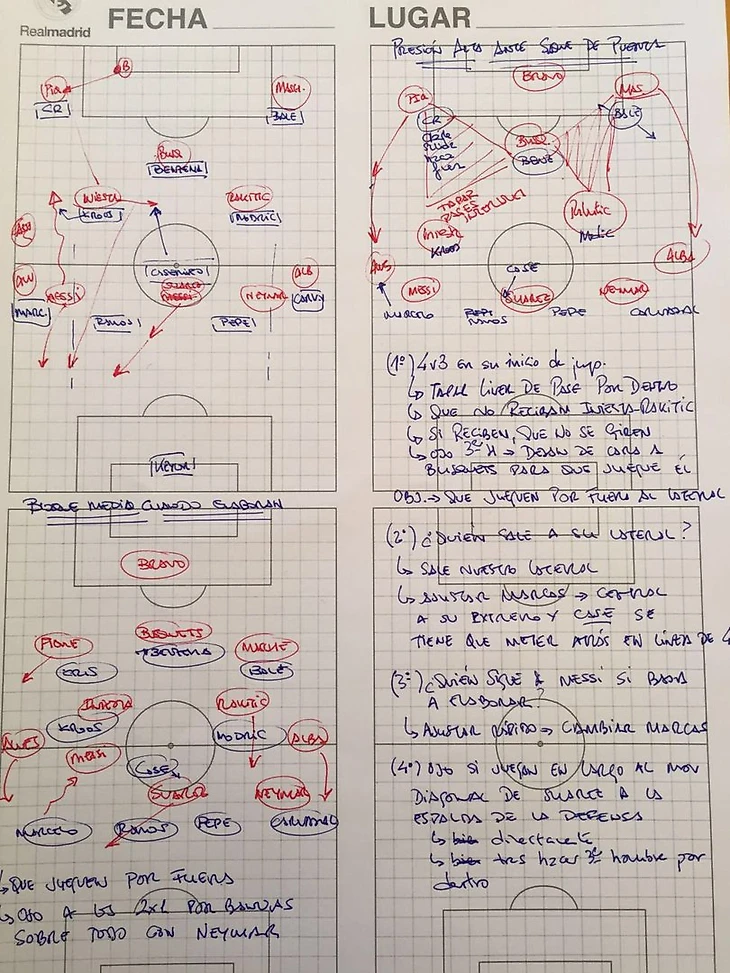 Realmadrid
FECHA
LUGAR
B
MASCH.
CR
BALE
BUSQ
BENZEMA
INIESTA
KROOS
RAKITIC
MODRIC
CASEMIRO
SUAREZ
MESSI
MESSI
NEYMAR
ALB
MARC.
CARVAJ
RAMOS
PEPE
KEYLOR
BLOQUE MEDIO CUANDO ELABORAN
BRAVO
PIQUE
BUSQUETS
BENZEMA
CRIS
BALE
INIESTA
RAKITIC
KROOS
MODRIC
ALVES
ALBA
MESSI
CASE
SUAREZ
NEYMAR
MARCELO
RAMOS
PEPE
CARVAJAL
↳ QUE JUEGUEN POR FUERA
↳ OJO A LOS 2x1 POR BANDAS
SOBRE TODO CON NEYMAR
PRESIÓN ALTA ANTE SAQUE DE PUERTA
BRAVO
MAS.
CR
BALE
BUSQ.
BENZE
TAPAR
PASES
INTERIOR
INIESTA
KROOS
RAKITIC
MODRIC
ALVES
ALBA
CASE
MESSI
SUAREZ
NEYMAR
MARCELO
RAMOS
PEPE
CARVAJAL
(1º) 4v3 en su inicio de jueg.
↳ TAPAR LINEA DE PASE POR DENTRO
↳ QUE NO RECIBAN INIESTA-RAKITIC
↳ SI RECIBEN, QUE NO SE GIREN
↳ OJO 3er H → DEJAN DE CARA A
BUSQUETS PARA QUE JUEGUE ÉL
OBJ. → QUE JUEGUEN POR FUERA AL LATERAL
(2º) ¿QUIÉN SALE A SU LATERAL?
↳ SALE NUESTRO LATERAL
↳ AJUSTAR MARCAS → CENTRAL
A SU EXTREMO Y CASE SE
TIENE QUE METER ATRÁS EN LÍNEA DE 4
(3º) ¿QUIÉN SIGUE A MESSI SI BAJA
A ELABORAR?
↳ AJUSTAR RÁPIDO → CAMBIAR MARCAS
(4º) OJO SI JUEGAN EN LARGO AL MOV
DIAGONAL DE SUAREZ A LA
ESPALDA DE LA DEFENSA
↳ bien directamente
↳ bien tras hacer 3er hombre por
dentro